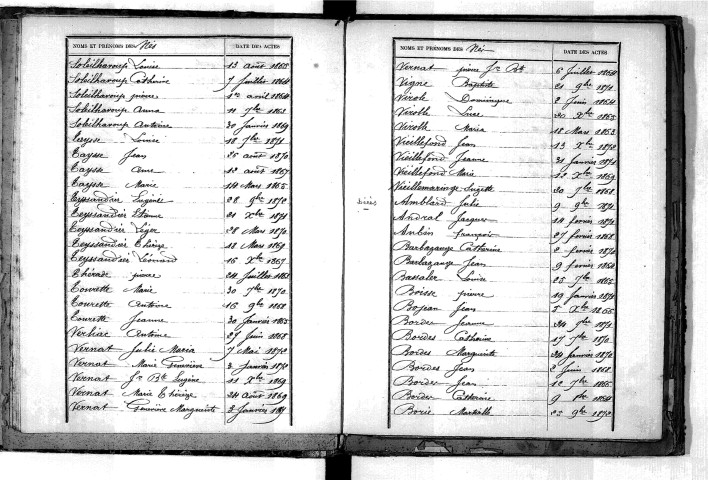 NOMS ET PRÉNOMS DES Nés DATE DES ACTES
Soleilhavoup Louise 13 août 1865
Soleilhavoup Catherine 7 Juillet 1864
Soleilhavoup pierre 1er avril 1864
Soleilhavoup Anna 11 7bre 1868
Soleilhavoup Antoine 30 Janvier 1869
Taysse Louise 18 7bre 1871
Taysse Jean 25 août 1870
Taysse Anne 12 août 1867
Taysse Marie 14 Mars 1865
Teyssandier Eugénie 28 9bre 1870
Teyssandier Etienne 21 Xbre 1871
Teyssandier Léger 28 Mars 1870
Teyssandier Thérèze 18 Mars 1869
Teyssandier Léonard 16 Xbre 1867
Thérade pierre 24 Juillet 1862
Tourette Marie 30 7bre 1870
Tourette Antoine 16 9bre 1868
Tourette Jeanne 30 Janvier 1865
Verliac Antoine 29 Juin 1868
Vernat Julie Maria 7 Mai 1870
Vernat Marie Geneviève 3 Janvier 1871
Vernat Jn Bte Eugène 11 Xbre 1869
Vernat Marie Thérèze 24 Août 1869
Vernat Geneviève Marguerite 3 Janvier 1871
NOMS ET PRÉNOMS DES Nés DATE DES ACTES
Vernat pierre Jn Bte 6 Juillet 1864
Vigne Baptiste 21 9bre 1871
Virole Dominique 2 Juin 1864
Virolle Luce 20 Xbre 1865
Virolle Maria 18 Mars 1863
Vieillefond Jean 13 Xbre 1870
Vieillefond Jeanne 31 Janvier 1871
Vieillefond Marie 12 Xbre 1869
Vieillemaringe Suzette 20 7bre 1868
Amblard Julie 9 9bre 1871
Andral Jacques 14 fevrier 1871
Aubin françois 27 fevrier 1868
Barbazange Catherine 2 fevrier 1870
Barbazange Jean 9 fevrier 1868
Bassaler Louise 25 7bre 1865
Boisse pierre 19 Janvier 1871
Bojean Jean 5 Xbre 1866
Bordes Jeanne 24 9bre 1871
Bordes Catherine 17 7bre 1870
Bordes Marguerite 20 Janvier 1870
Bordes Jean 2 Juin 1868
Bordes Jean 12 7bre 1865
Bordes Catherine 9 1864
Borie Martiale 25 9bre 1870